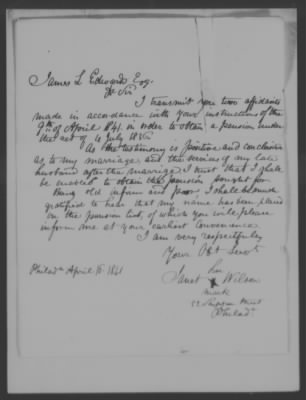 James L Edward Esq.
Dr Sir
I transmit you two affidavits
made in accordance with your instructions of the
9th of April 1841. in order to obtain a pension under
the act of 4 July 1836
As the testimony is positive and conclusive
as to my marriage and the services of my late
husband after the marriage I trust that I shall
be enabled to obtain the pension sought for
being old infirm and poor I shall be much
gratified to hear that my name has been placed
on the pension list, of which you will please
inform me at your earliest convenience
I am very respectfully
Your Obt Servt
her
Janet X Wilson
mark
Philada April 1841
52 Shippen Street
Philada